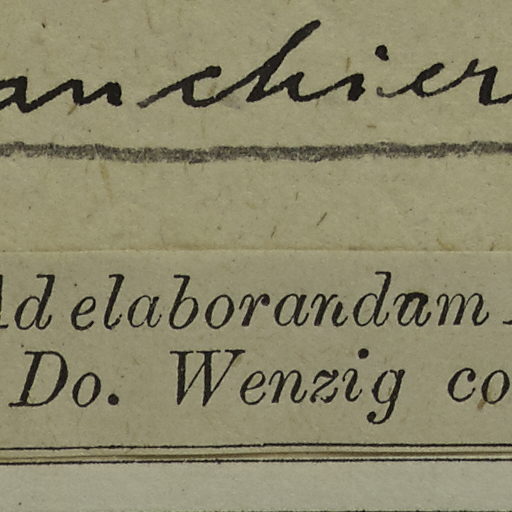 anchier
Ad elaborandam
Do. Wenzig co